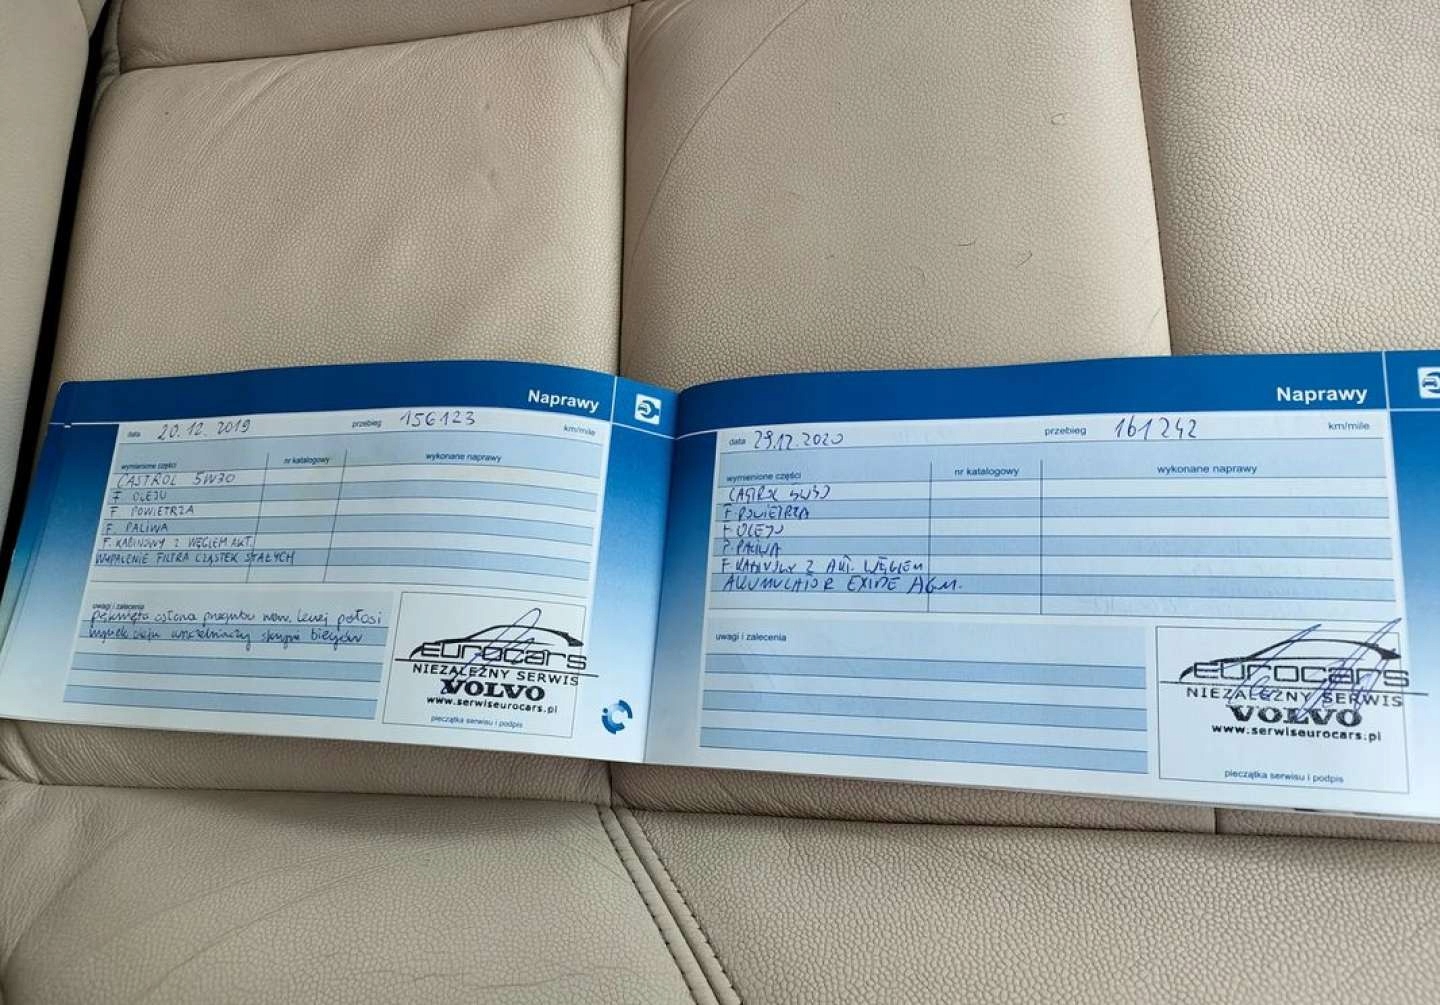 Naprawy
data 20.12.2019 przebieg 156123 km/mile
wymienione części nr katalogowy wykonane naprawy
CASTROL 5W30
F OLEJU
F POWIETRZA
F. PALIWA
F. KABINOWY Z WĘGLEM AKT.
WYPALENIE FILTRA CZĄSTEK STAŁYCH
uwagi i zalecenia
pęknięta osłona przegubu wew. lewej półosi
wyciek oleju uszczelniaczy skrzyni biegów
eurocars
NIEZALEŻNY SERWIS
VOLVO
www.serwiseurocars.pl
pieczątka serwisu i podpis
Naprawy
data 29.12.2020 przebieg 161242 km/mile
wymienione części nr katalogowy wykonane naprawy
CASTROL 5W30
F. POWIETRZA
F. OLEJU
F. PALIWA
F. KABINOWY Z AKT. WĘGLEM
AKUMULATOR EXIDE AGM.
uwagi i zalecenia
eurocars
NIEZALEŻNY SERWIS
VOLVO
www.serwiseurocars.pl
pieczątka serwisu i podpis